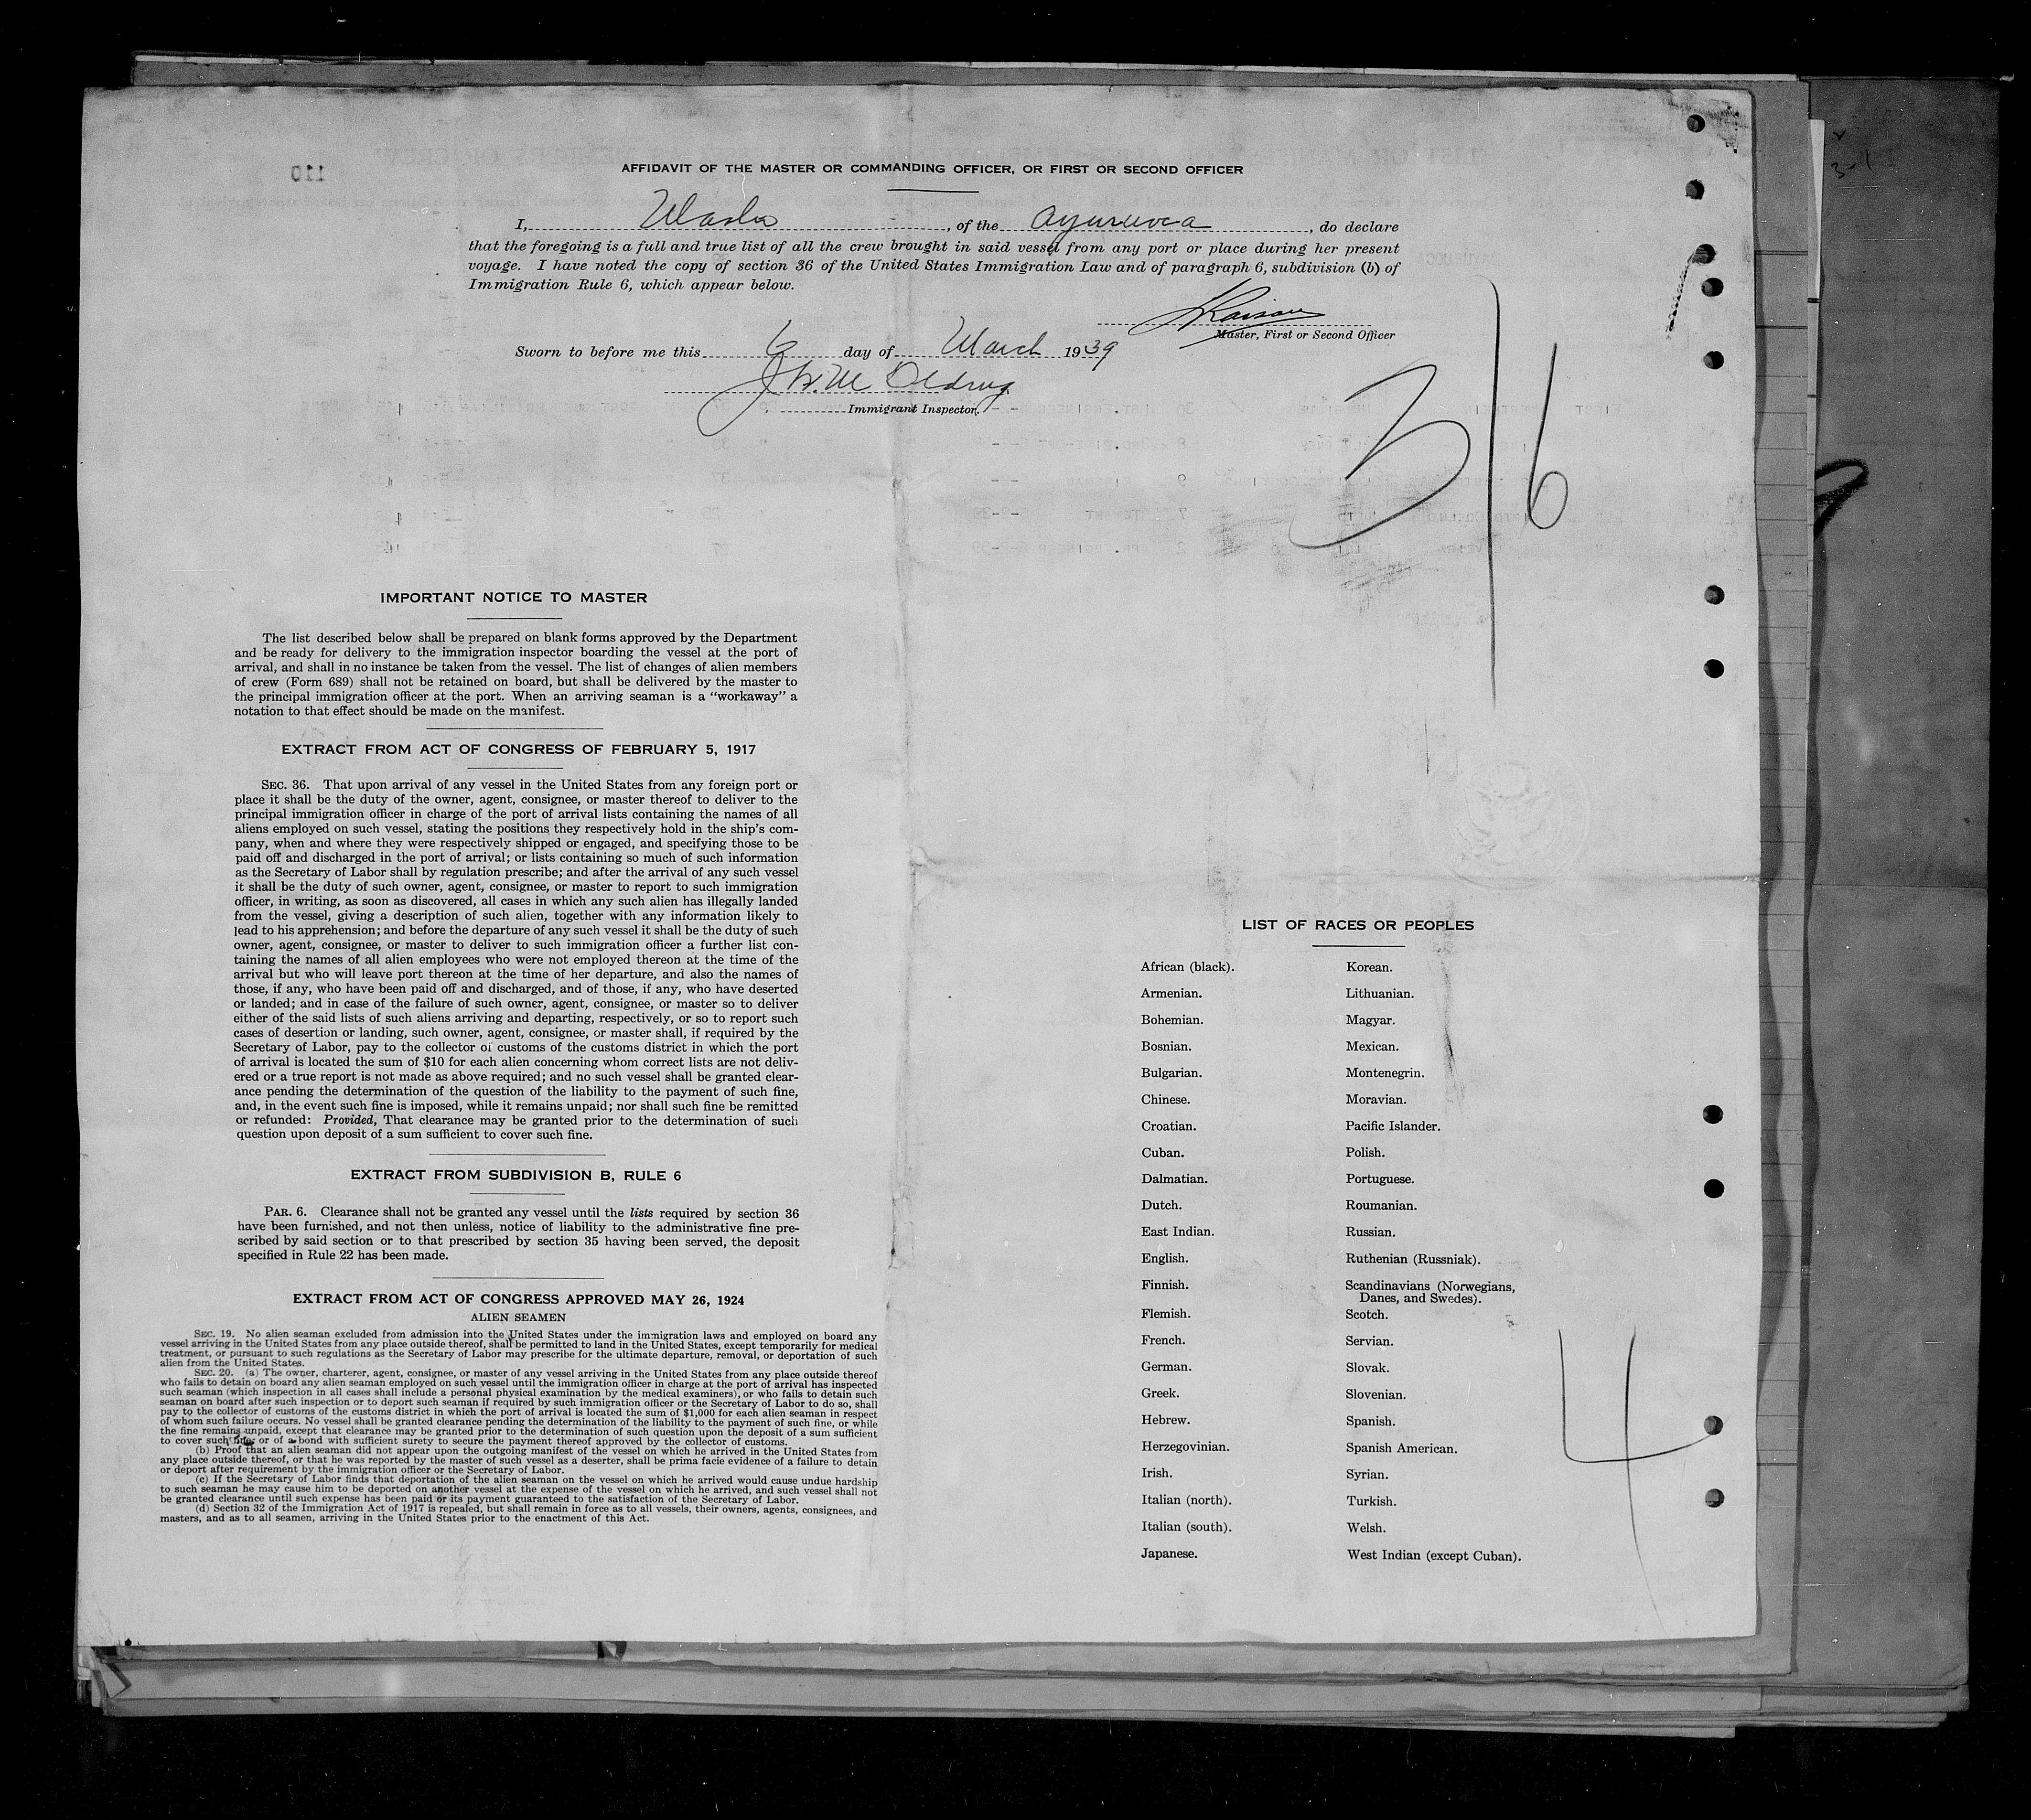 AFFIDAVIT OF THE MASTER OR COMMANDING OFFICER, OR FIRST OR SECOND OFFICER
110
I, Master, of the Ayuruoca, do declare
that the foregoing is a full and true list of all the crew brought in said vessel from any port or place during her present
voyage. I have noted the copy of section 36 of the United States Immigration Law and of paragraph 6, subdivision (b) of
Immigration Rule 6, which appear below.
Master, First or Second Officer
Sworn to before me this 6 day of March 1939
Immigrant Inspector.
3/6
IMPORTANT NOTICE TO MASTER
The list described below shall be prepared on blank forms approved by the Department
and be ready for delivery to the immigration inspector boarding the vessel at the port of
arrival, and shall in no instance be taken from the vessel. The list of changes of alien members
of crew (Form 689) shall not be retained on board, but shall be delivered by the master to
the principal immigration officer at the port. When an arriving seaman is a "workaway" a
notation to that effect should be made on the manifest.
EXTRACT FROM ACT OF CONGRESS OF FEBRUARY 5, 1917
SEC. 36. That upon arrival of any vessel in the United States from any foreign port or
place it shall be the duty of the owner, agent, consignee, or master thereof to deliver to the
principal immigration officer in charge of the port of arrival lists containing the names of all
aliens employed on such vessel, stating the positions they respectively hold in the ship's com-
pany, when and where they were respectively shipped or engaged, and specifying those to be
paid off and discharged in the port of arrival; or lists containing so much of such information
as the Secretary of Labor shall by regulation prescribe; and after the arrival of any such vessel
it shall be the duty of such owner, agent, consignee, or master to report to such immigration
officer, in writing, as soon as discovered, all cases in which any such alien has illegally landed
from the vessel, giving a description of such alien, together with any information likely to
lead to his apprehension; and before the departure of any such vessel it shall be the duty of such
owner, agent, consignee, or master to deliver to such immigration officer a further list con-
taining the names of all alien employees who were not employed thereon at the time of the
arrival but who will leave port thereon at the time of her departure, and also the names of
those, if any, who have been paid off and discharged, and of those, if any, who have deserted
or landed; and in case of the failure of such owner, agent, consignee, or master so to deliver
either of the said lists of such aliens arriving and departing, respectively, or so to report such
cases of desertion or landing, such owner, agent, consignee, or master shall, if required by the
Secretary of Labor, pay to the collector of customs of the customs district in which the port
of arrival is located the sum of $10 for each alien concerning whom correct lists are not deliv-
ered or a true report is not made as above required; and no such vessel shall be granted clear-
ance pending the determination of the question of the liability to the payment of such fine,
and, in the event such fine is imposed, while it remains unpaid; nor shall such fine be remitted
or refunded: Provided, That clearance may be granted prior to the determination of such
question upon deposit of a sum sufficient to cover such fine.
EXTRACT FROM SUBDIVISION B, RULE 6
PAR. 6. Clearance shall not be granted any vessel until the lists required by section 36
have been furnished, and not then unless, notice of liability to the administrative fine pre-
scribed by said section or to that prescribed by section 35 having been served, the deposit
specified in Rule 22 has been made.
EXTRACT FROM ACT OF CONGRESS APPROVED MAY 26, 1924
ALIEN SEAMEN
SEC. 19. No alien seaman excluded from admission into the United States under the immigration laws and employed on board any
vessel arriving in the United States from any place outside thereof, shall be permitted to land in the United States, except temporarily for medical
treatment, or pursuant to such regulations as the Secretary of Labor may prescribe for the ultimate departure, removal, or deportation of such
alien from the United States.
SEC. 20. (a) The owner, charterer, agent, consignee, or master of any vessel arriving in the United States from any place outside thereof
who fails to detain on board any alien seaman employed on such vessel until the immigration officer in charge at the port of arrival has inspected
such seaman (which inspection in all cases shall include a personal physical examination by the medical examiners), or who fails to detain such
seaman on board after such inspection or to deport such seaman if required by such immigration officer or the Secretary of Labor to do so, shall
pay to the collector of customs of the customs district in which the port of arrival is located the sum of $1,000 for each alien seaman in respect
of whom such failure occurs. No vessel shall be granted clearance pending the determination of the liability to the payment of such fine, or while
the fine remains unpaid, except that clearance may be granted prior to the determination of such question upon the deposit of a sum sufficient
to cover such fine, or of a bond with sufficient surety to secure the payment thereof approved by the collector of customs.
(b) Proof that an alien seaman did not appear upon the outgoing manifest of the vessel on which he arrived in the United States from
any place outside thereof, or that he was reported by the master of such vessel as a deserter, shall be prima facie evidence of a failure to detain
or deport after requirement by the immigration officer or the Secretary of Labor.
(c) If the Secretary of Labor finds that deportation of the alien seaman on the vessel on which he arrived would cause undue hardship
to such seaman he may cause him to be deported on another vessel at the expense of the vessel on which he arrived, and such vessel shall not
be granted clearance until such expense has been paid or its payment guaranteed to the satisfaction of the Secretary of Labor.
(d) Section 32 of the Immigration Act of 1917 is repealed, but shall remain in force as to all vessels, their owners, agents, consignees, and
masters, and as to all seamen, arriving in the United States prior to the enactment of this Act.
LIST OF RACES OR PEOPLES
African (black).
Armenian.
Bohemian.
Bosnian.
Bulgarian.
Chinese.
Croatian.
Cuban.
Dalmatian.
Dutch.
East Indian.
English.
Finnish.
Flemish.
French.
German.
Greek.
Hebrew.
Herzegovinian.
Irish.
Italian (north).
Italian (south).
Japanese.
Korean.
Lithuanian.
Magyar.
Mexican.
Montenegrin.
Moravian.
Pacific Islander.
Polish.
Portuguese.
Roumanian.
Russian.
Ruthenian (Russniak).
Scandinavians (Norwegians,
Danes, and Swedes).
Scotch.
Servian.
Slovak.
Slovenian.
Spanish.
Spanish American.
Syrian.
Turkish.
Welsh.
West Indian (except Cuban).
4